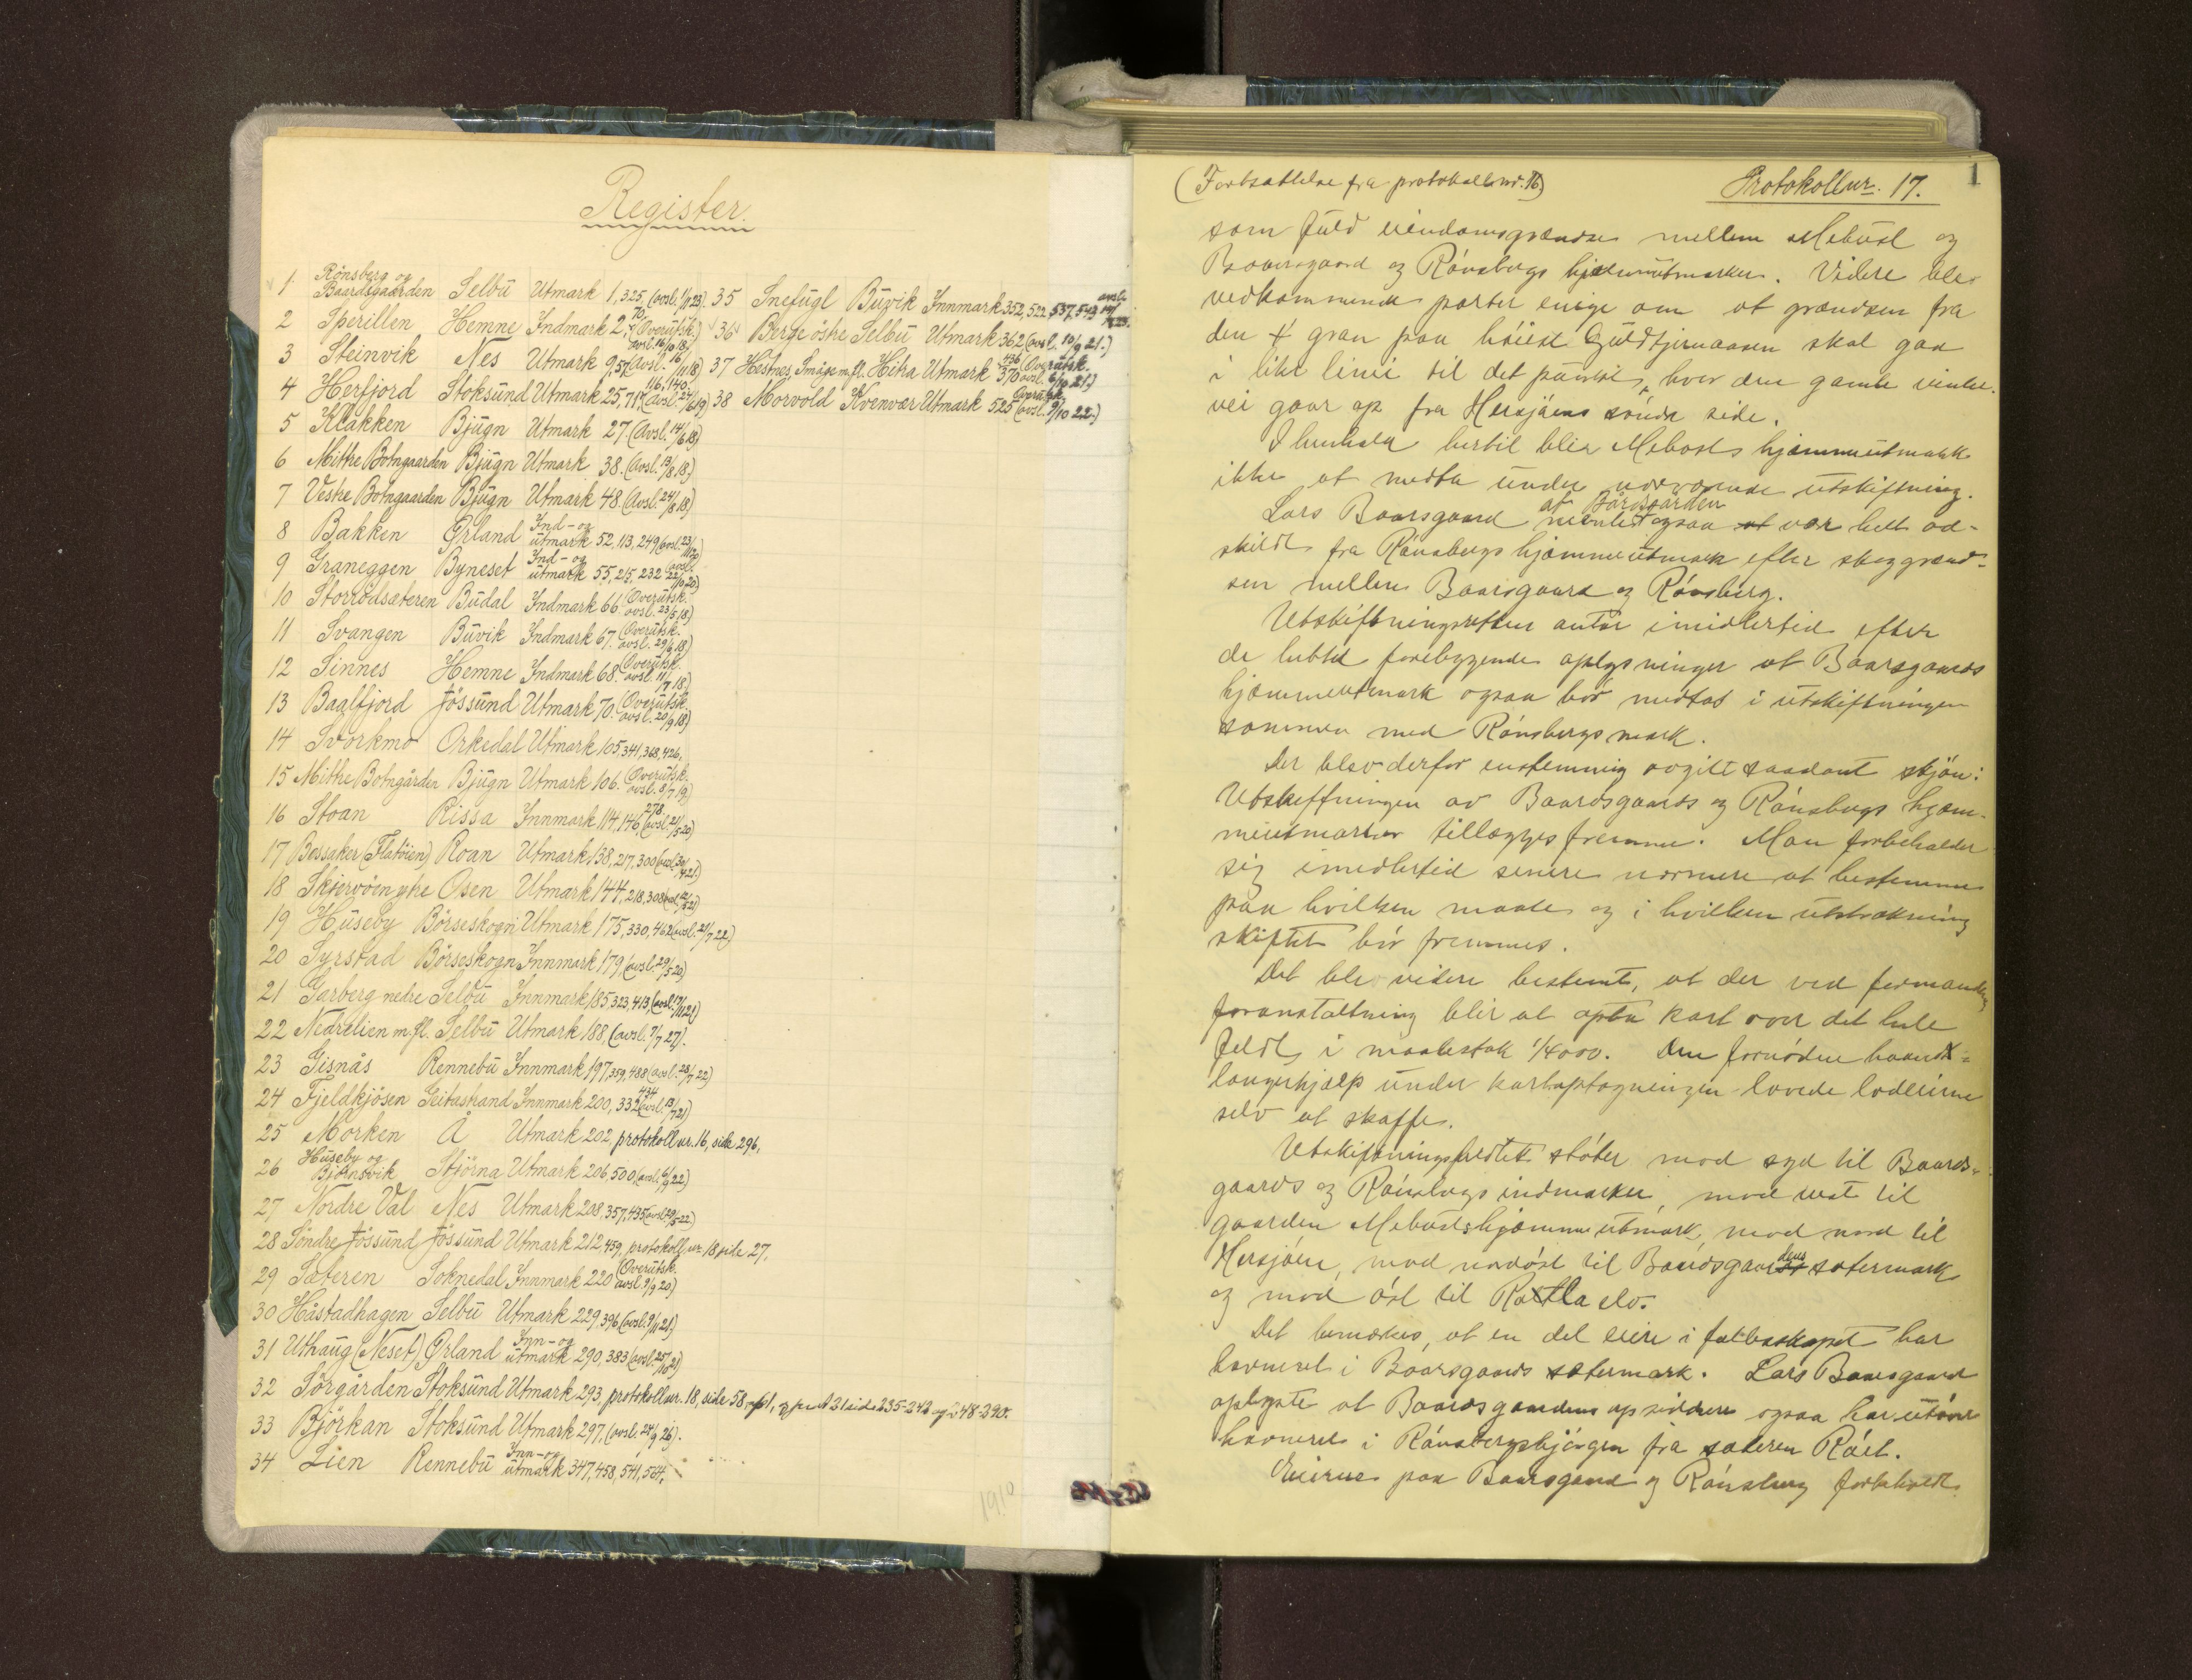 Register.
1 Rönsberg og Baardsgaarden Selbu Utmark 1,325, (avsl. 1/1 23)
2 Sperillen Hemne Indmark 2, 70, (Overutsk. avsl. 16/10 18)
3 Steinvik Nes Utmark 9,57, (Avsl. 16/11 18)
4 Herfjord Stoksund Utmark 25,71, 116, 140, (avsl. 24/6 19)
5 Klakken Bjugn Utmark 27. (Avsl. 14/6 18)
6 Mithe Botngaarden Bjugn Utmark 38. (Avsl. 13/8 18)
7 Vestre Botngaarden Bjugn Utmark 48. (Avsl. 24/8 18)
8 Bakken Ørland Ind- og utmark 52, 113, 249 (avsl. 23/11 20)
9 Graneggen Byneset Ind- og utmark 55, 215, 232 (avsl. 22/10 20)
10 Storrödsæteren Budal Indmark 66 (Overutsk. avsl. 23/5 18)
11 Svangen Buvik Indmark 67. (Overutsk. avsl. 29/6 18)
12 Sinnes Hemne Indmark 68. (Overutsk. avsl. 11/7 18)
13 Baglfjord Jössund Utmark 70. (Overutsk. avsl. 20/9 18)
14 Svorkmo Orkedal Utmark 105, 341, 368, 426,
15 Mithe Botngården Bjugn Utmark 106. (Overutsk. avsl. 8/7 19)
16 Stoan Rissa Innmark 114, 146, 278 (avsl. 21/5 20)
17 Bessaker (Flatöien) Roan Utmark 138, 217, 300 (avsl. 30/4 21.)
18 Skjervöin ytre Osen Utmark 144, 218, 308 (avsl. 12/5 21)
19 Huseby Börseskogn Utmark 175, 330, 462 (avsl. 21/7 22)
20 Syrstad Börseskogn Innmark 179, (avsl. 29/5 20)
21 Garberg nedre Selbu Innmark 185, 323, 413, (avsl. 17/11 21)
22 Nedrelien m.fl. Selbu Utmark 188, (avsl. 7/7 27).
23 Gisnås Rennebu Innmark 197, 359, 488 (avsl. 28/7 22)
24 Fjeldkjösen Geitastrand Innmark 200, 332, 434 (avsl. 13/7 21)
25 Morken Å Utmark 202, protokoll nr. 16, side 296,
26 Huseby og Björnsvik Stjörna Utmark 206, 500, (avsl. 6/9 22)
27 Nordre Val Nes Utmark 208, 357, 435 (avsl. 29/5 22.)
28 Söndre Jössund Jössund Utmark 212, 459, protokoll nr. 18 side 27.
29 Sæteren Soknedal Innmark 220 (Overutsk. avsl. 9/9 20)
30 Håstadhagen Selbu Utmark 229, 396, (avsl. 9/11 21.)
31 Uthaug (Neset) Ørland Inn- og utmark 290, 383 (avsl. 25/10 21)
32 Sörgården Stoksund Utmark 293, protokoll nr. 18, side 58, 21 side 235-242 og 248-290.
33 Björkan Stoksund Utmark 297, (avsl. 24/9 26).
34 Lien Rennebu Inn- og utmark 347, 458, 541, 564,
35 Snefugl Buvik Innmark 352, 522, 537, 543 avsl.
36 Berge östre Selbu Utmark 362 (avsl. 10/9 21.)
37 Hestnes, Småge m.fl. Hitra Utmark 370, 436 (Overutsk. avsl. 6/10 21)
38 Morvold Kvenvær Utmark 525 (Overutsk. avsl. 9/10 22.)
1910
(Fortsættelse fra protokoll nr. 16) Protokoll nr. 17. 1
som fuld eiendomsgrændse mellem Mebust og
Baarsgaard og Rönsbergs hjemmeutmarker. Videre blev
vedkommende parter enige om at grændsen fra
den # gran paa höiest Guldtjernaasen skal gaa
i like linie til det punkt, hvor den gamle vinter-
vei gaar op fra Hersjöens söndre side.
I henhold hertil blir Mebost hjemmeutmark
ikke at medta under nærværende utskiftning.
Lars Baarsgaard mente ogsaa at Bårdsgården var helt ad-
skildt fra Rönsbergs hjemmeutmark efter skoggrænd-
sen mellem Baarsgaard og Rönsberg.
Utskiftningsretten antar imidlertid efter
de hittil forebyggende oplysninger at Baarsgaards
hjemmeutmark ogsaa bör medtas i utskiftningen
sammen med Rönsbergs mark.
Der blev derfor enstemmig avgitt saadant skjön:
Utskiftningen av Baardsgaards og Rönsbergs hjem-
meutmarker tillægges fremme. Man forbeholder
sig imidlertid senere nærmere at bestemme
paa hvilken maate og i hvilken utstrækning
skiftet bör fremmes.
Det blev videre bestemt, at der ved formandens
foranstaltning blir at opta kart over det hele
feldt i maalestok 1/4000. Den fornödne haand-
langerhjælp under kartoptagningen lovede lodeierne
selv at skaffe.
Utskiftningsfeltet stöter mod syd til Baards-
gaards og Rönsbergs indmarker, mod vest til
gaarden Mebosts hjemmeutmark, mod nord til
Hersjöen, mod nordöst til Baardsgaardens sætermark
og mod öst til Rotla elv.
Det bemerkes, at en del eiere i fællesskapet har
havneret i Baarsgaards sætermark. Lars Baarsgaard
oplyste at Baardsgaardens opsiddere ogsaa har utövet
havneret i Rönsbergshjörgen fra sæteren Röet.
Eierne paa Baarsgaard og Rönsberg forbeholdt